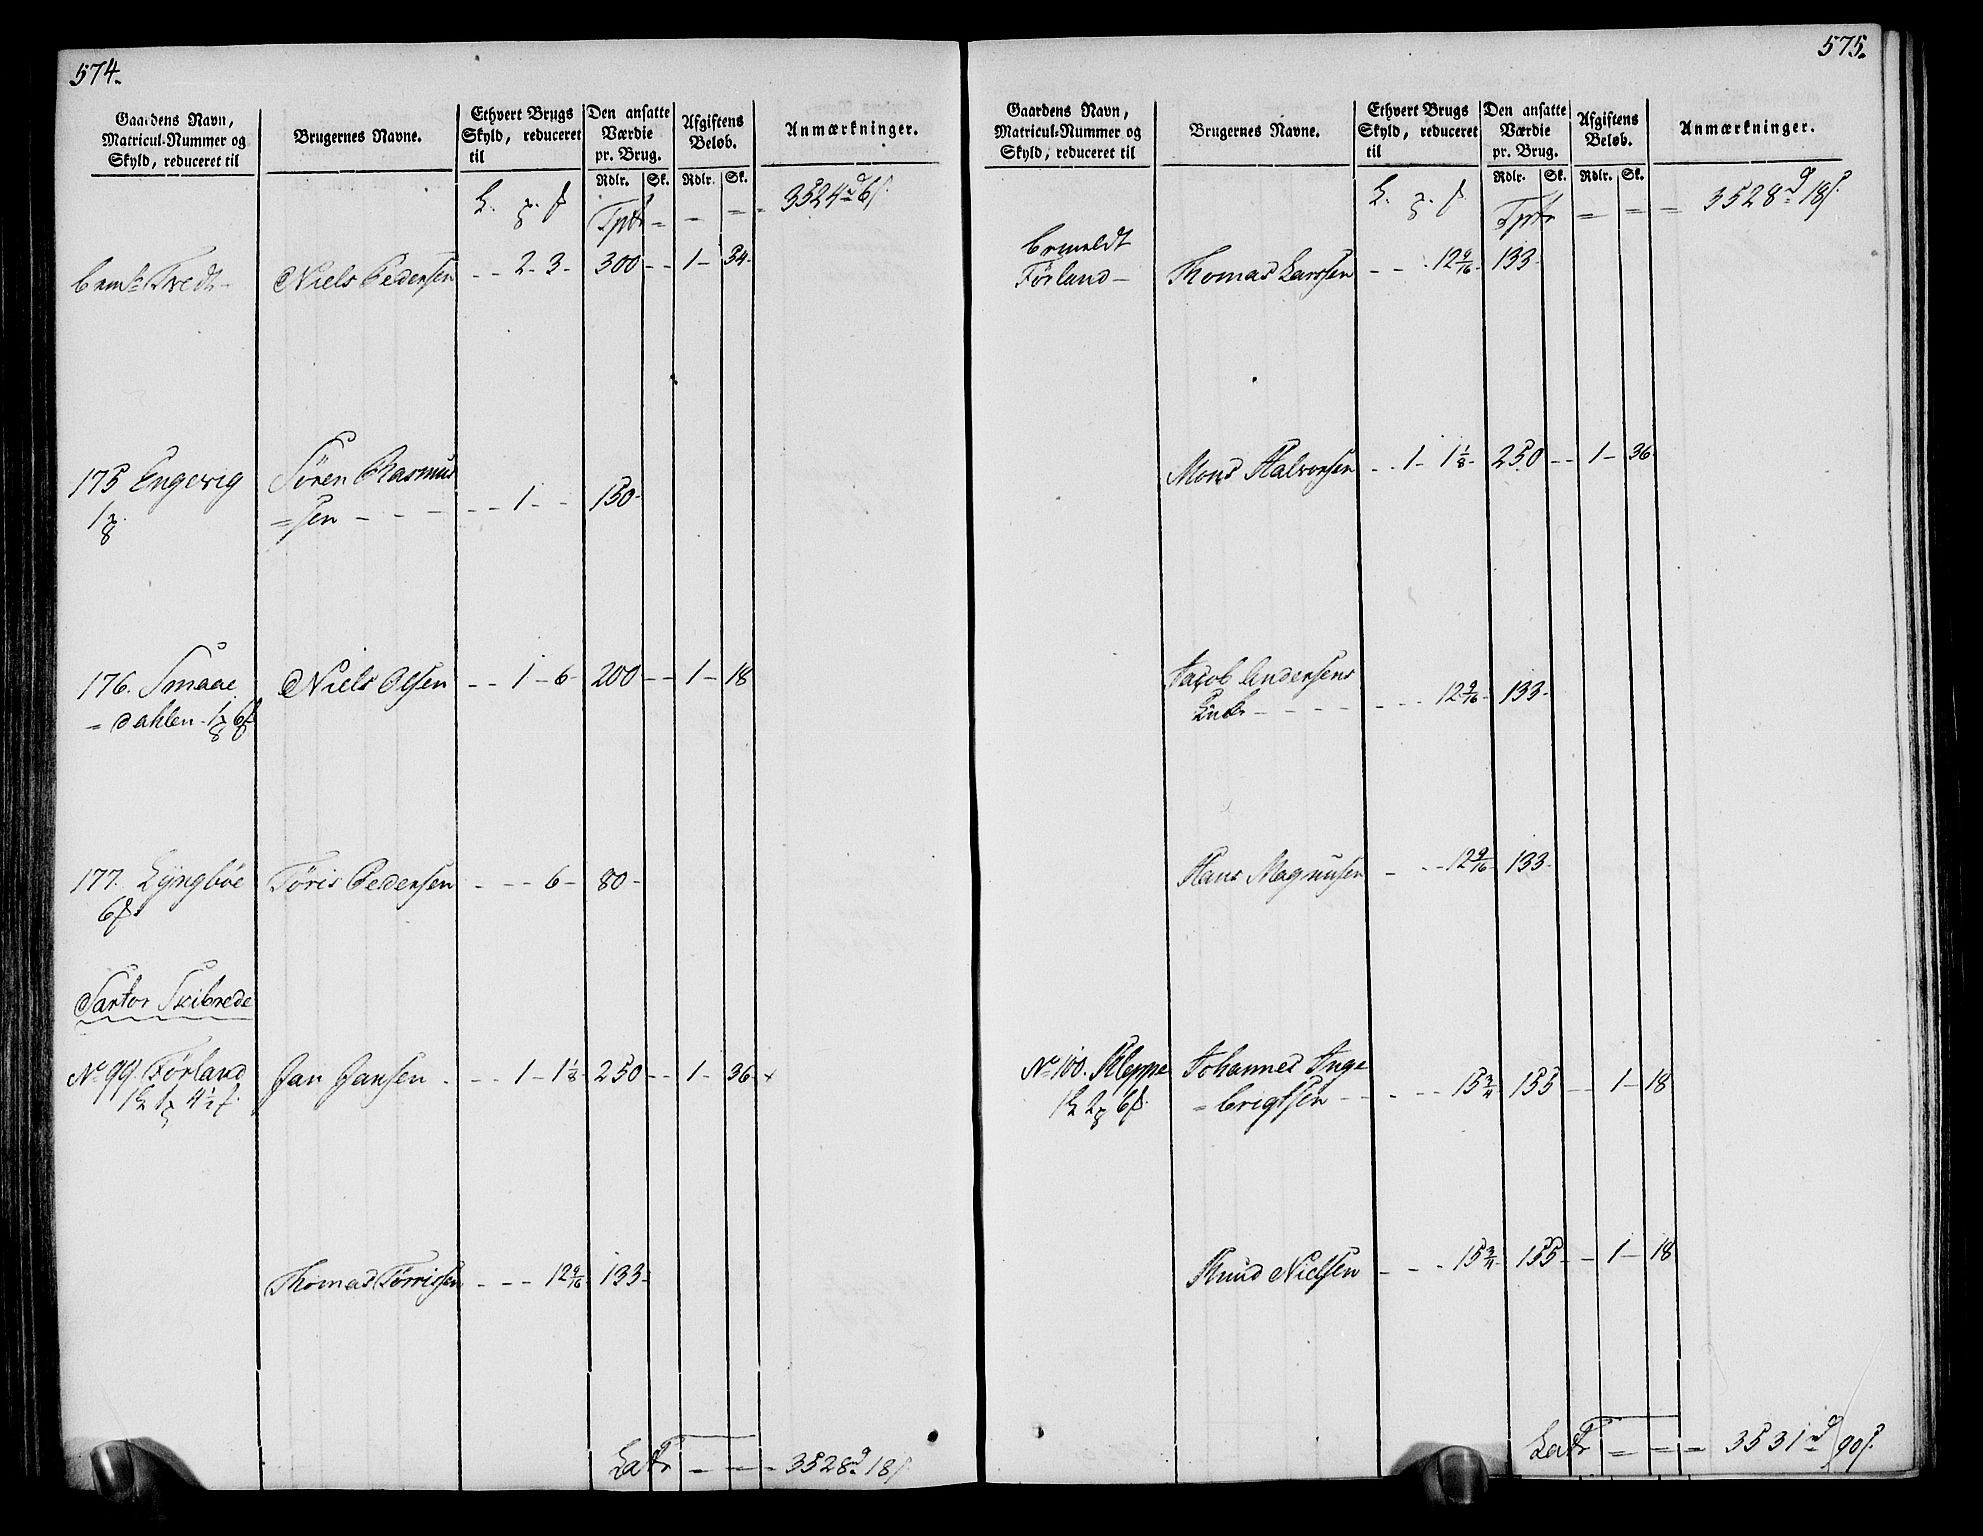 574.
Gaardens Navn, Matricul-Nummer og Skyld, reduceret til
Brugernes Navne.
Ethvert Brugs Skyld, reduceret til
Den ansatte Værdie pr. Brug.
Afgiftens Beløb.
Anmærkninger.
Rdlr. Sk. Rdlr. Sk.
Tptr = - = - 3524 d 6 s.
Tvedt - Niels Pedersen - - 2 - 3 - 300 - - 1 - 54 -
175 Engevig Sören Rasmus
=sen - - - - - 1 - - 150 -
176. Smaae Niels Olsen - - 1 - 6 - 200 - - 1 - 18
= dahlen
177. Lÿngbøe Töris Pedersen - - - 6 - 80 -
Sartor Skibrede
No 99 Førland Jan Jansen - - - 1 - 1 1/8 - 250 - - 1 - 36 -
Thomas Törrissen - - - 12 9/16 - 133 -
Latr - - - 3528 d 18 s.
575.
Gaardens Navn, Matricul-Nummer og Skyld, reduceret til
Brugernes Navne.
Ethvert Brugs Skyld, reduceret til
Den ansatte Værdie pr. Brug.
Afgiftens Beløb.
Anmærkninger.
Rdlr. Sk. Rdlr. Sk.
Tptr = = = 3528 d 18 s.
bemeldt
Førland - Thomas Larssen - - - 12 9/16 - 133 -
Mons Halvorsen - - 1 - 1 1/8 - 250 - - 1 - 36
Jacob Andersens
Enke - - - - - - - 12 9/16 - 133 -
Hans Magnussen - - - 12 9/16 - 133 -
No 100. Kleppe Johannes Inge
= brigtsen - - - - - 15 3/4 - 155 - 1 - 18
Knud Nielsen - - - 15 3/4 - 155 - 1 - 18
Latr = - - 3531 d 90 s.